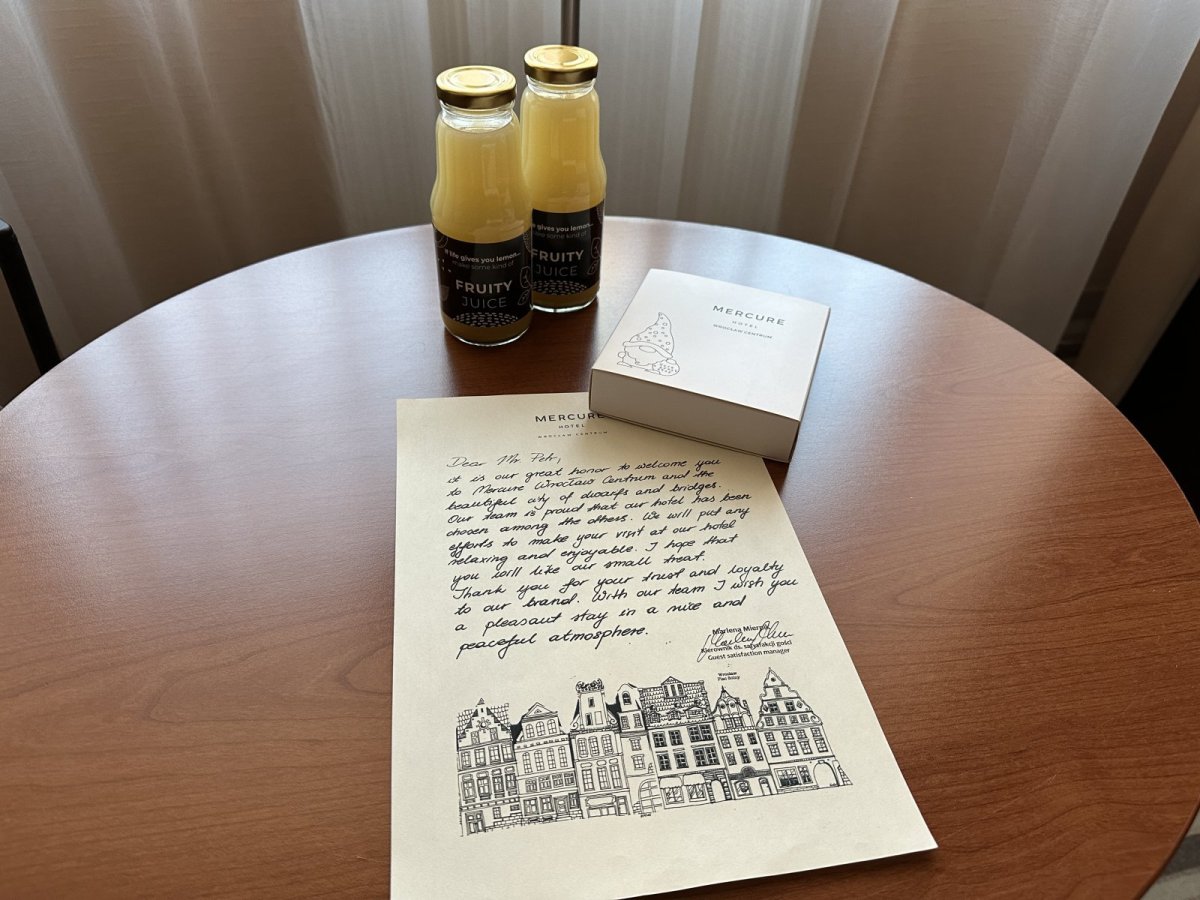 If life gives you lemon...
make some kind of
FRUITY
JUICE
life gives you lemon...
make some kind of
FRUITY
JUICE
MERCURE
HOTEL
WROCŁAW CENTRUM
MERCURE
HOTEL
WROCŁAW CENTRUM
Dear Mr. Petr,
it is our great honor to welcome you
to Mercure Wrocław Centrum and the
beautiful city of dwarfs and bridges.
Our team is proud that our hotel has been
chosen among the others. We will put any
efforts to make your visit at our hotel
relaxing and enjoyable. I hope that
you will like our small treat.
Thank you for your trust and loyalty
to our brand. With our team I wish you
a pleasant stay in a nice and
peaceful atmosphere.
Marlena
Kierownik ds. satysfakcji gości
Guest satisfaction manager
Wrocław
Plac